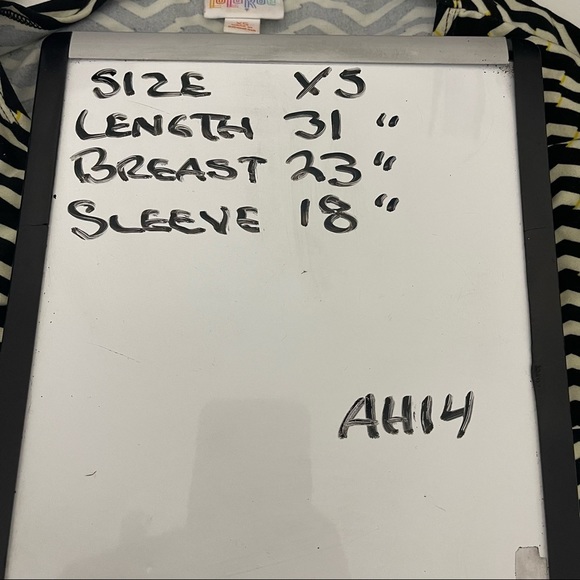 LuLaRoe
XS
SIZE XS
LENGTH 31 "
BREAST 23 "
SLEEVE 18 "
AH14